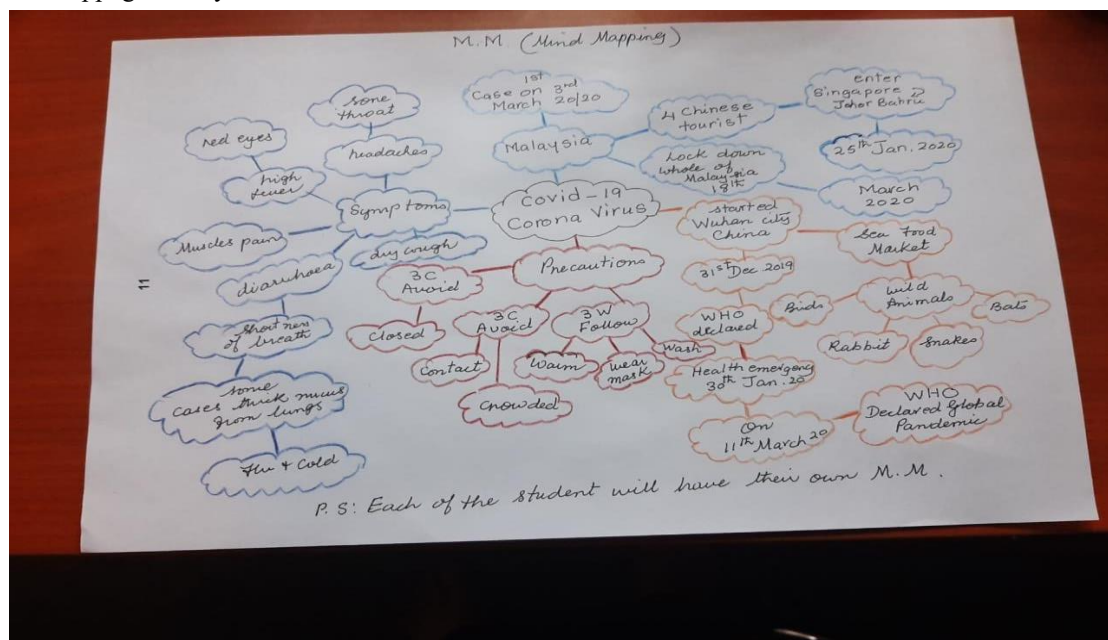 M.M. (Mind Mapping)
1st
Case on 3rd
March 20/20
Malaysia
4 Chinese
tourist
enter
Singapore
Johor Bahru
25th Jan. 2020
Lock down
whole of
Malaysia
18th
March
2020
sore
throat
headaches
red eyes
high
fever
Symptoms
Muscles pain
dry cough
diarrhoea
short ness
of breath
some
cases thick mucus
from lungs
Flu + Cold
Covid-19
Corona Virus
Precautions
3C
Avoid
Closed
3C
Avoid
Contact
Crowded
3W
Follow
Warm
wear
mask
Wash
started
Wuhan city
China
Sea Food
Market
wild
Animals
Birds
Rabbit
Snakes
Bats
31st Dec. 2019
WHO
declared
Health emergency
30th Jan. 20
On
11th March 20
WHO
Declared Global
Pandemic
P.S: Each of the student will have their own M.M.
11